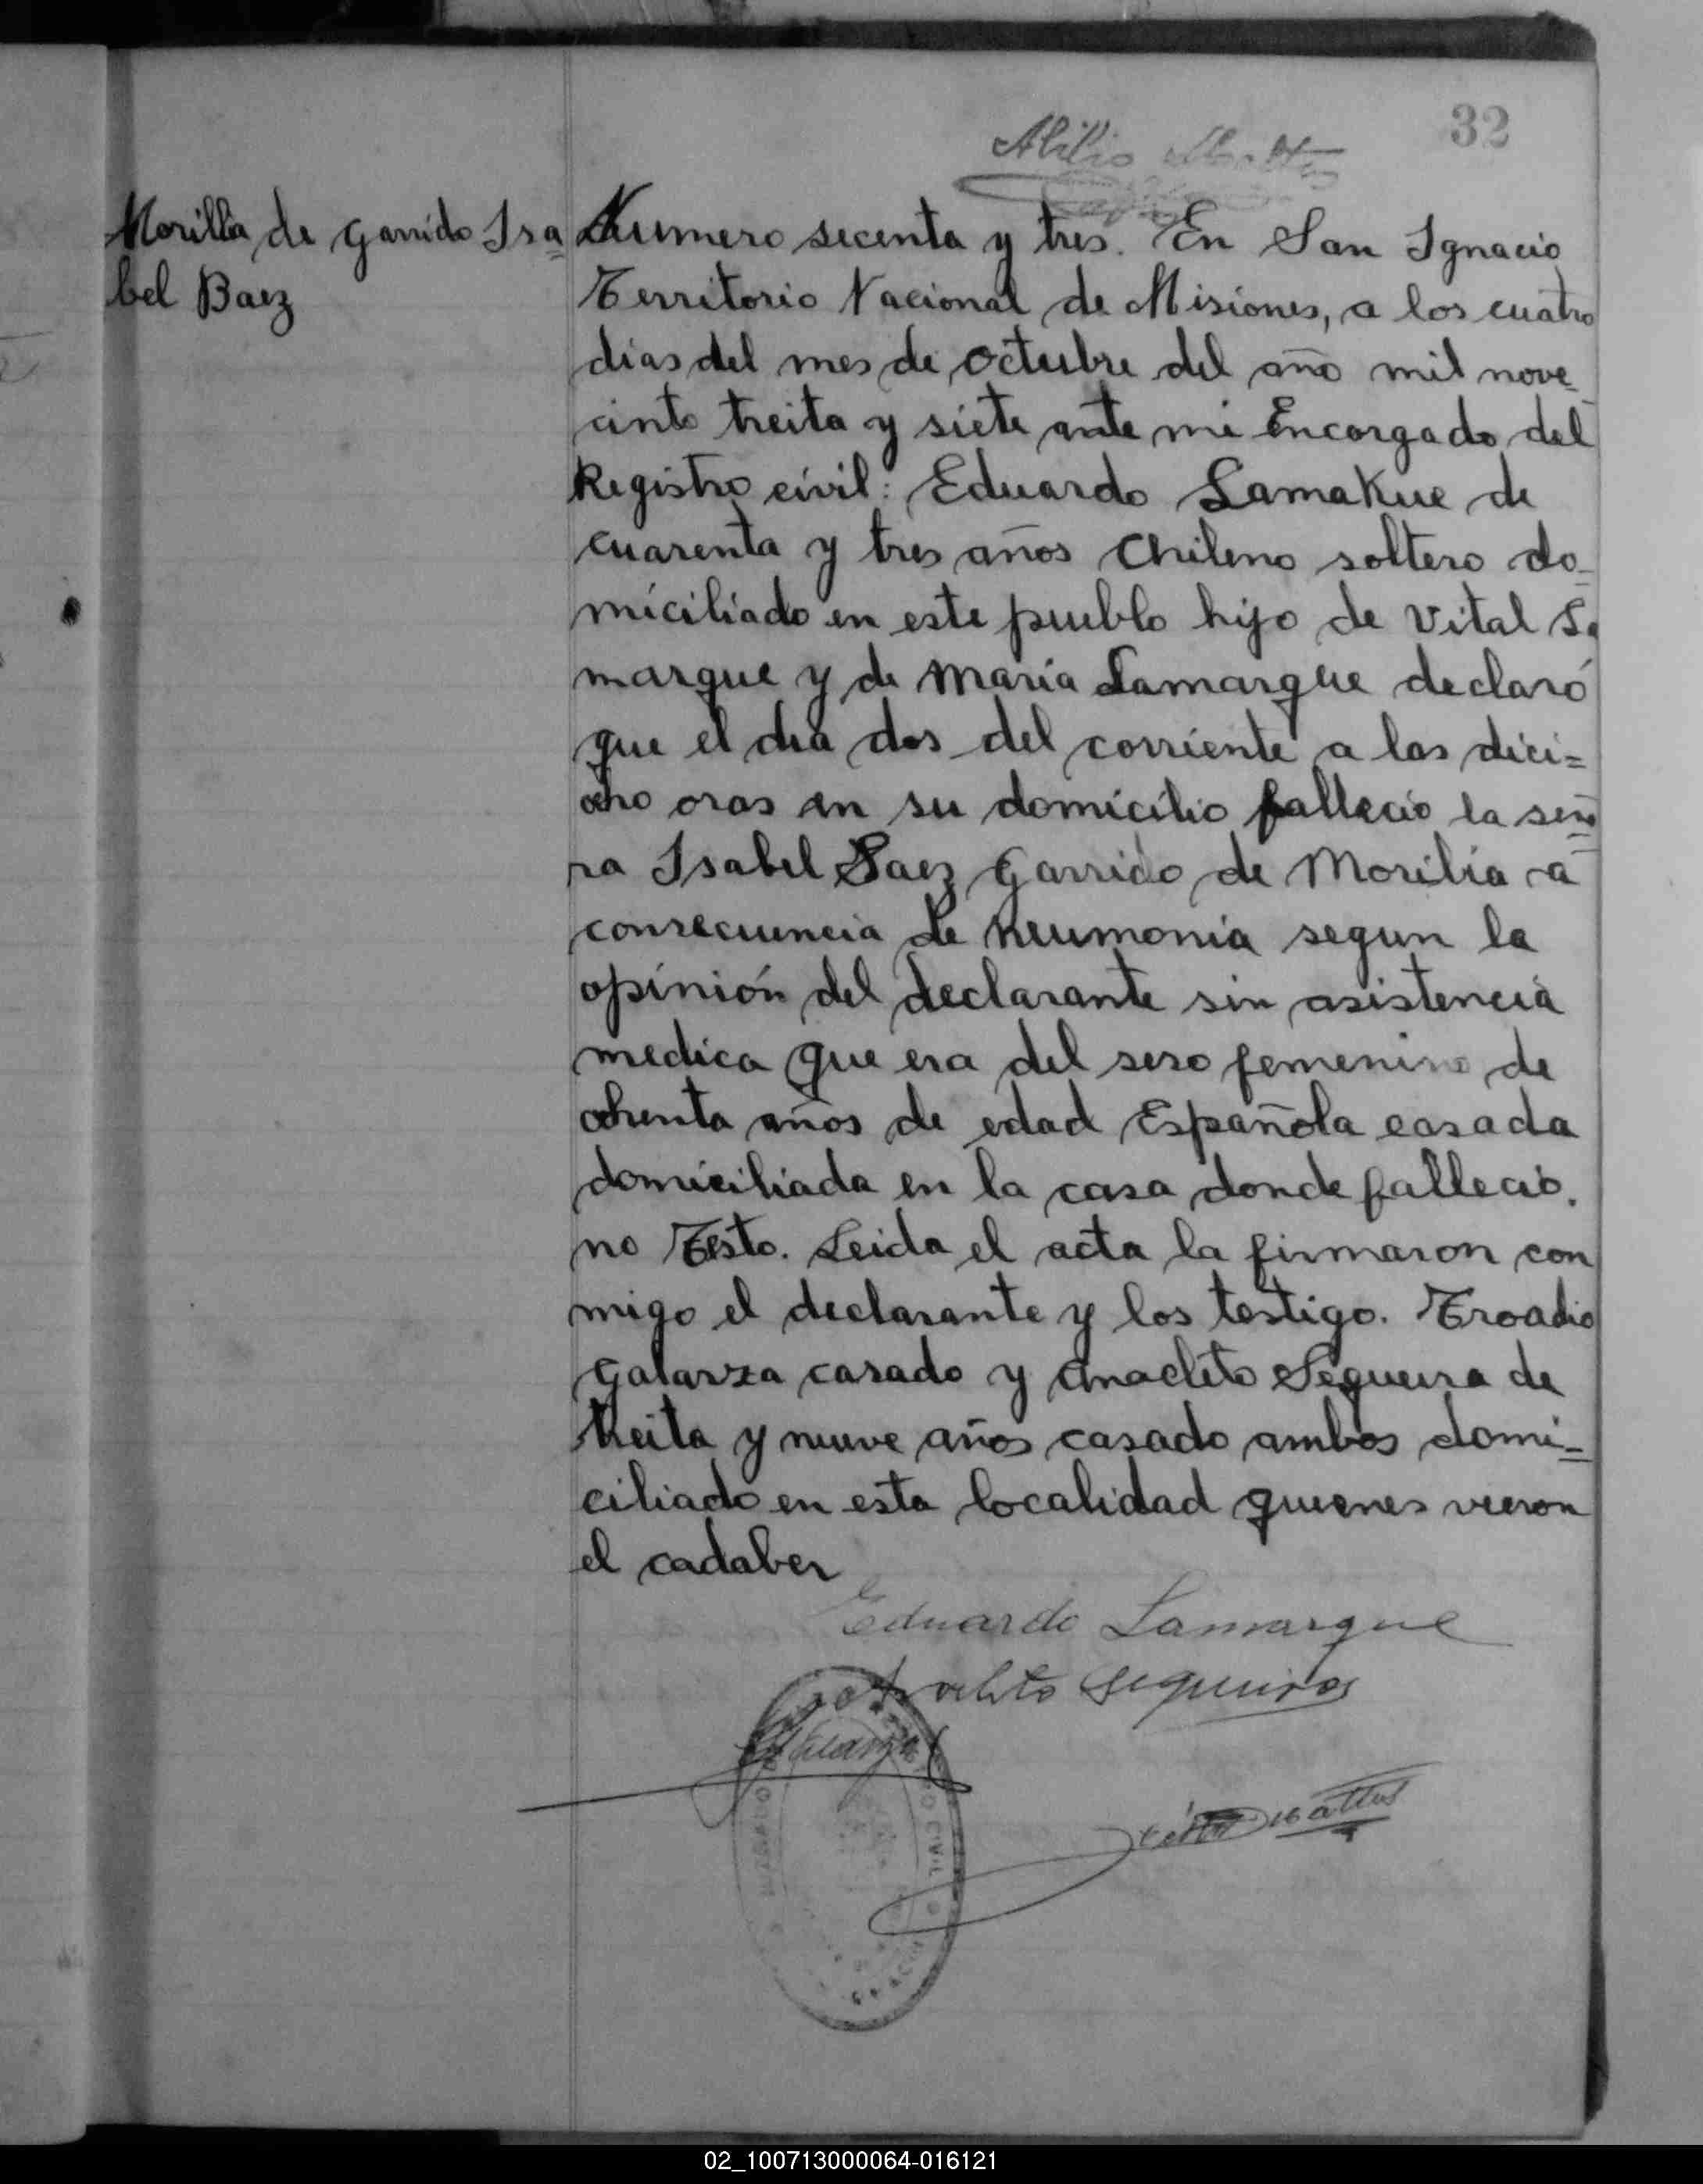 32
Abilio Mattos
Morilla de Garrido Isa=
bel Baez
Numero secenta y tres. En San Ignacio
Territorio Nacional de Misiones, a los cuatro
dias del mes de octubre del año mil nove_
cinto treita y siete ante mi Encargado del
Registro civil: Eduardo Lamakue de
cuarenta y tres años Chileno soltero do_
miciliado en este pueblo hijo de Vital La
marque y de Maria Lamarque declaró
que el dia dos del corriente a las dieci=
ocho oras en su domicilio fallecio la seño=
ra Isabel Baez Garrido de Morilia a
consecuencia de Neumonia segun la
opinión del declarante sin asistencia
medica que era del sexo femenino de
ochenta años de edad Española casada
domiciliada en la casa donde fallecio.
no Testo. Leida el acta la firmaron con
migo el declarante y los testigo. Troadio
Galarza casado y Anacleto Segueira de
treita y nueve años casado ambos domi=
ciliado en esta localidad quienes vieron
el cadaber
Eduardo Lamarque
Sequeiros
Galarza
Mattos
REGISTRO CIVIL
02_100713000064-016121